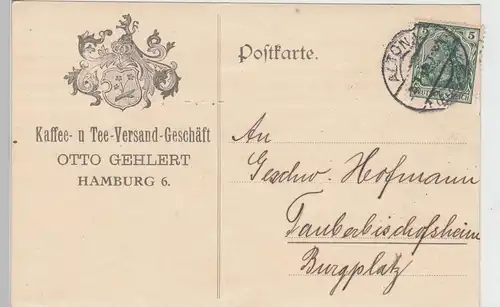 Postkarte.
ALTONA
5
Kaffee- u Tee-Versand-Geschäft
OTTO GEHLERT
HAMBURG 6.
An
Geschw. Hofmann
Tauberbischofsheim
Burgplatz